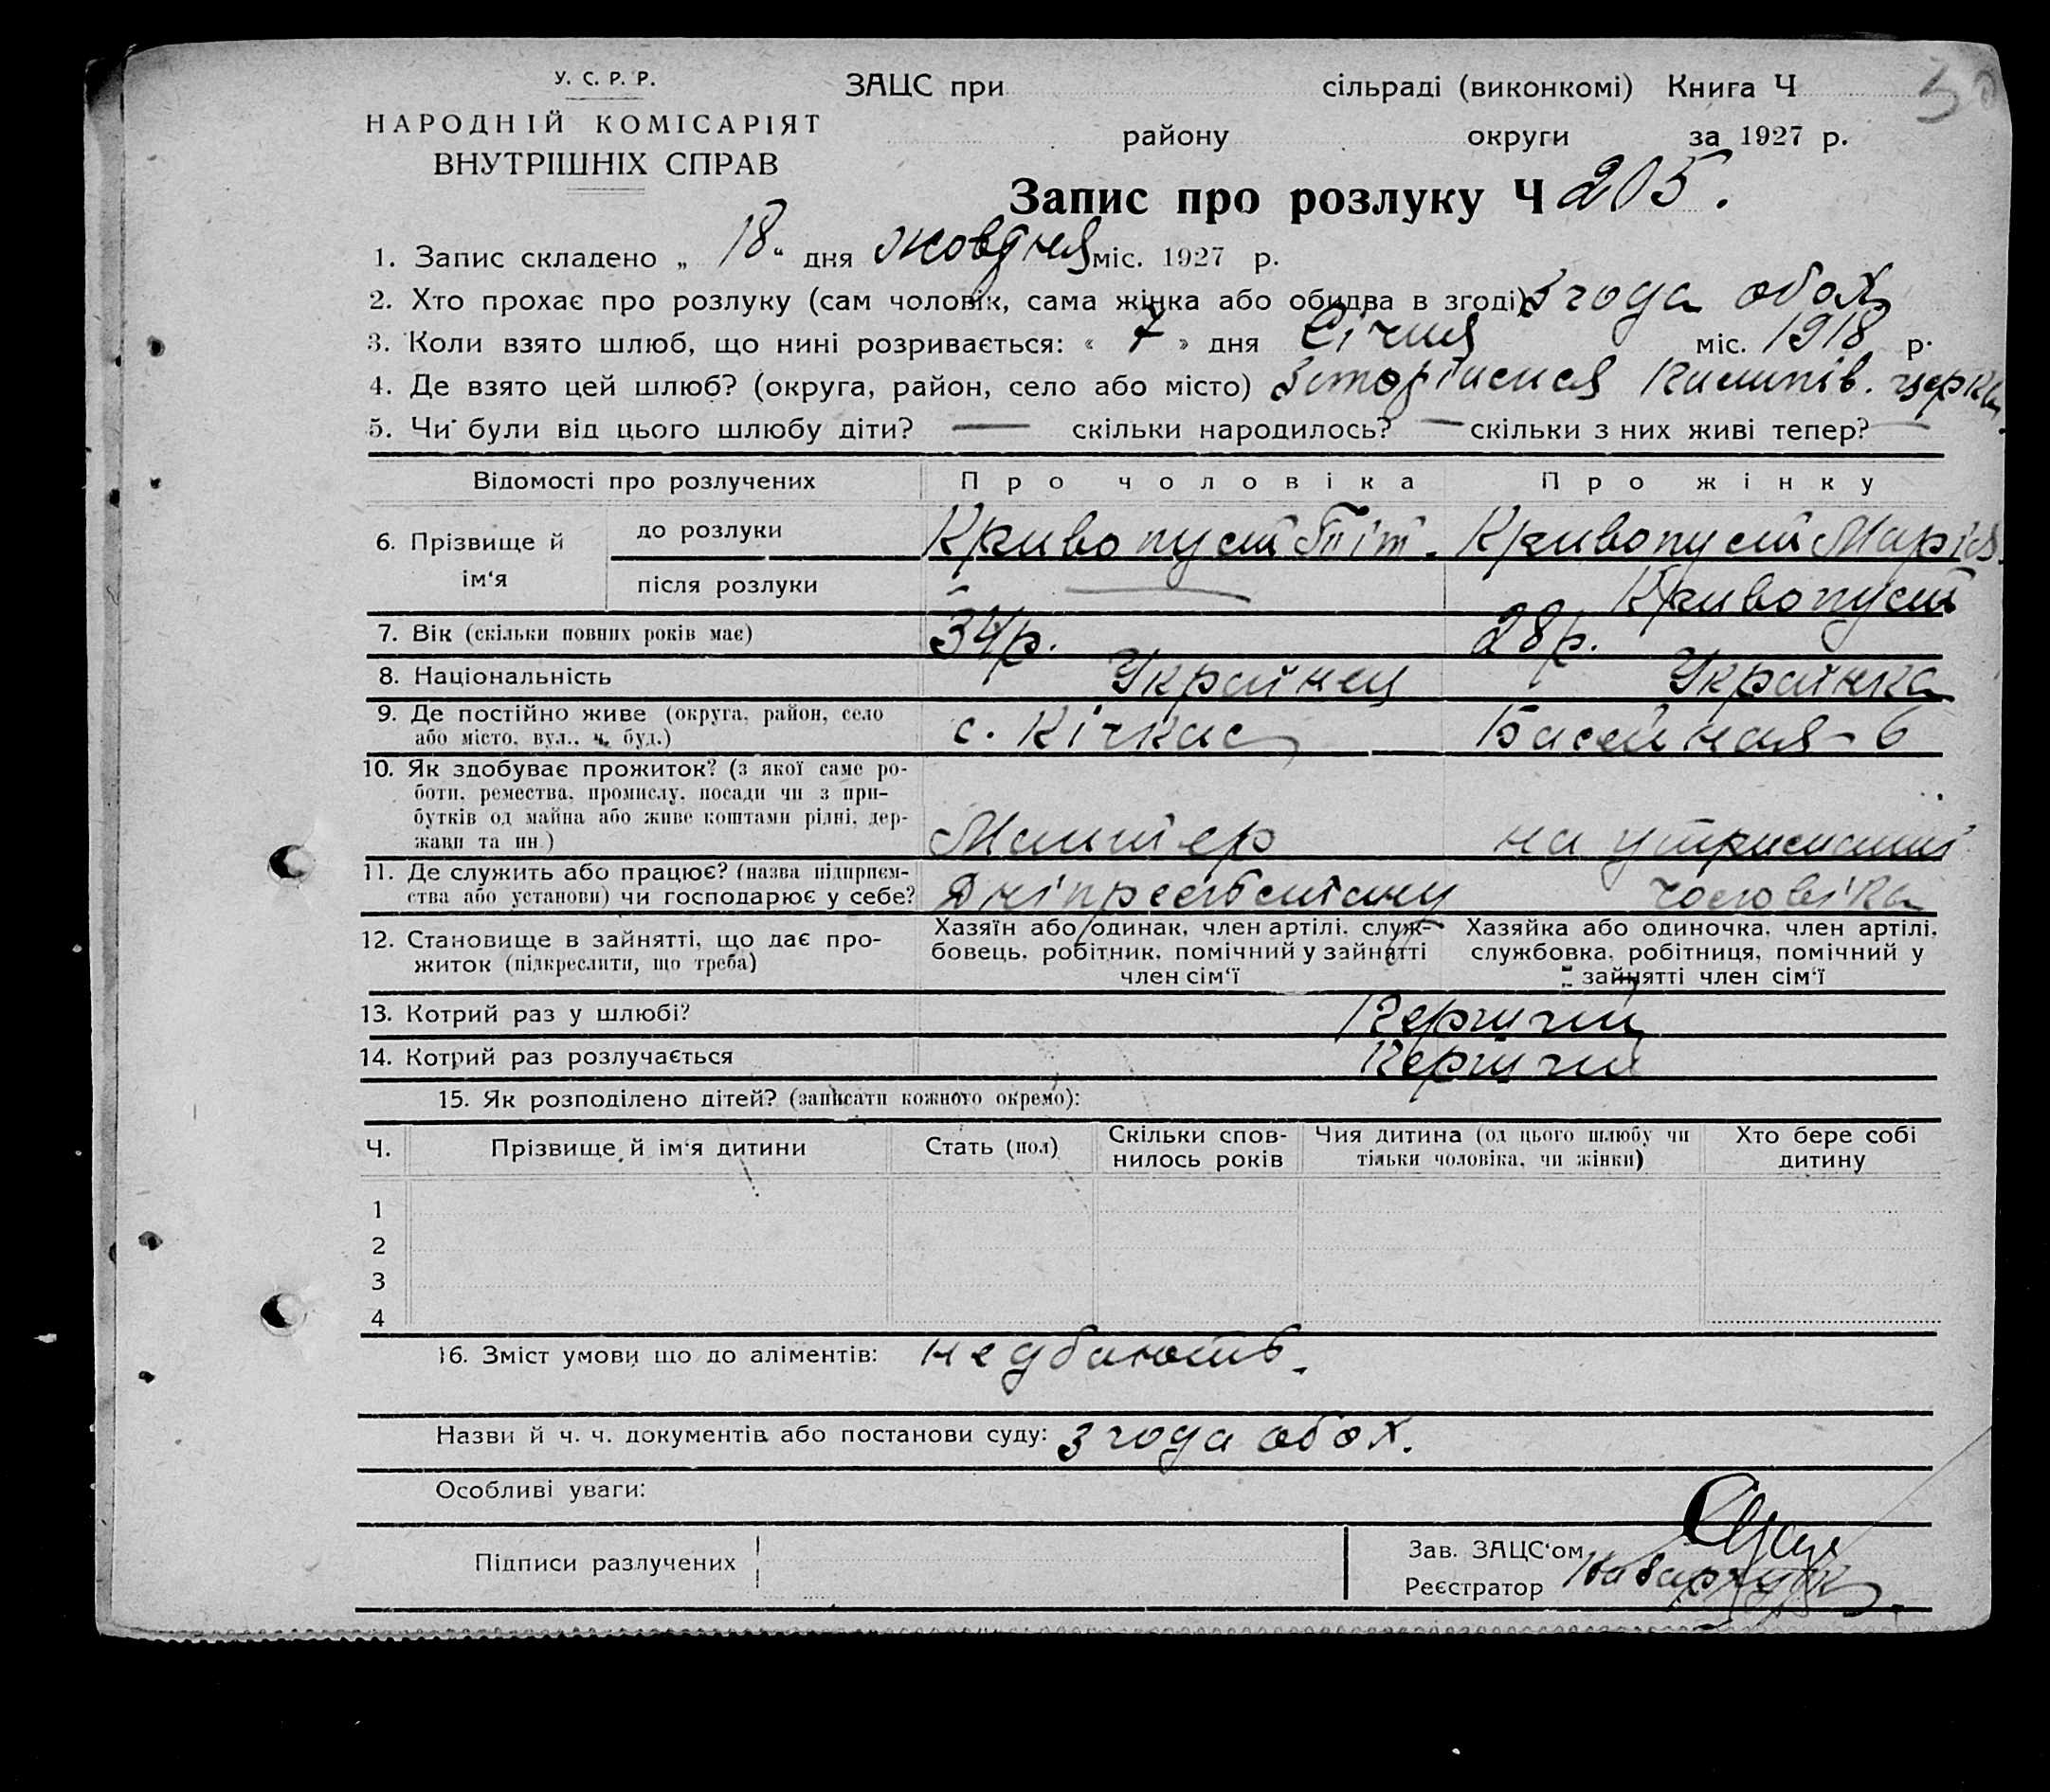 У. С. Р. Р.
НАРОДНІЙ КОМІСАРІЯТ
ВНУТРІШНІХ СПРАВ
ЗАЦС при сільраді (виконкомі) Книга Ч
району округи за 1927 р.
Запис про розлуку Ч 205.
1. Запис складено „ 18 “ дня жовдня міс. 1927 р.
2. Хто прохає про розлуку (сам чоловік, сама жінка або обидва в згоді) згода обох
3. Коли взято шлюб, що нині розривається: « 7 » дня Січня міс. 1918 р.
4. Де взято цей шлюб? (округа, район, село або місто)
5. Чи були від цього шлюбу діти? — скільки народилось? — скільки з них живі тепер? —
Відомості про розлучених Про чоловіка Про жінку
6. Прізвище й ім‘я
до розлуки Кривопуст Кривопуст Марія
після розлуки — Кривопуст
7. Вік (скільки повних років має) 34 р. 28 р.
8. Національність Украінец Украінка
9. Де постійно живе (округа, район, село
або місто, вул., ч. буд.) с. Кічкас Басейная 6
10. Як здобуває прожиток? (з якої саме ро-
боти, ремества, промислу, посади чи з при-
бутків од майна або живе коштами рідні, дер-
жави та ин.) на утриманні
11. Де служить або працює? (назва підприєм-
ства або установи) чи господарює у себе? чоловіка
12. Становище в зайнятті, що дає про-
житок (підкреслити, що треба)
Хазяїн або одинак, член артілі, служ-
бовець, робітник, помічний у зайнятті
член сім‘ї
Хазяйка або одиночка, член артілі,
службовка, робітниця, помічний у
зайнятті член сім‘ї
13. Котрий раз у шлюбі? Перший
14. Котрий раз розлучається Перший
15. Як розподілено дітей? (записати кожного окремо):
Ч. Прізвище й ім‘я дитини Стать (пол) Скільки спов-
нилось років Чия дитина (од цього шлюбу чи
тільки чоловіка, чи жінки) Хто бере собі
дитину
1
2
3
4
16. Зміст умови що до аліментів: не дбають
Назви й ч. ч. документів або постанови суду: згода обох.
Особливі уваги:
Підписи разлучених
Зав. ЗАЦС‘ом
Реєстратор